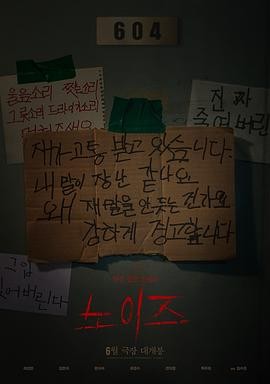 604
울음소리 짖는소리
그릇소리 드라이기소리
진짜
죽여버린
제가 고통 받고 있습니다.
내 말이 장난 같나요
왜 제 말을 안 듣는 건가요
강하게 경고합니다
그만
죽여버린다
노이즈
6월 극장 대개봉